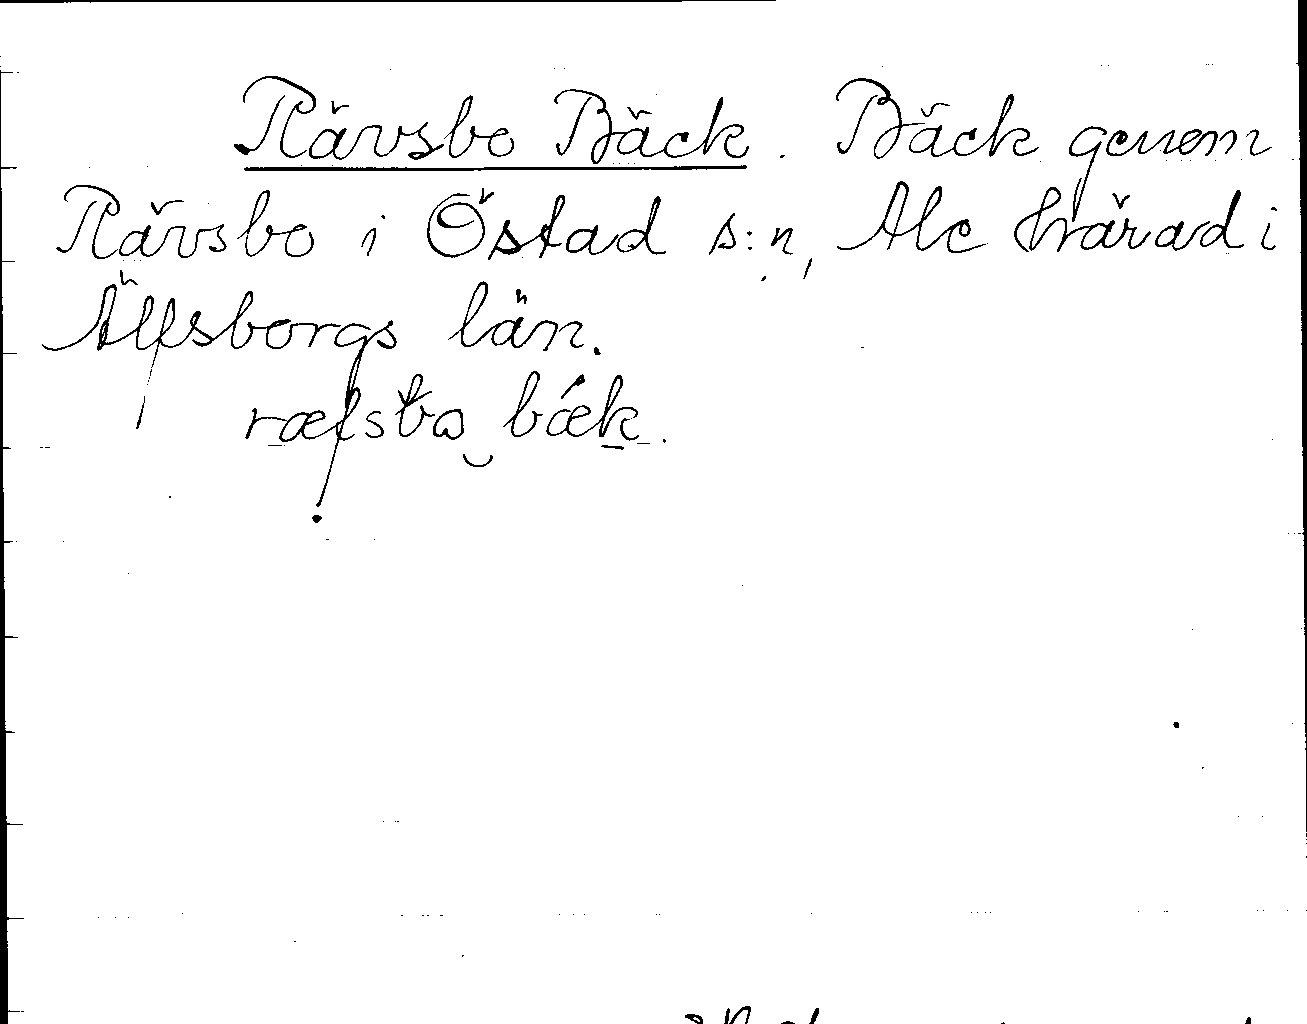 Rävsbo Bäck. Bäck genom
Rävsbo i Östad s:n, Ale härad i
Älfsborgs län.
ræfsbω bǽk.